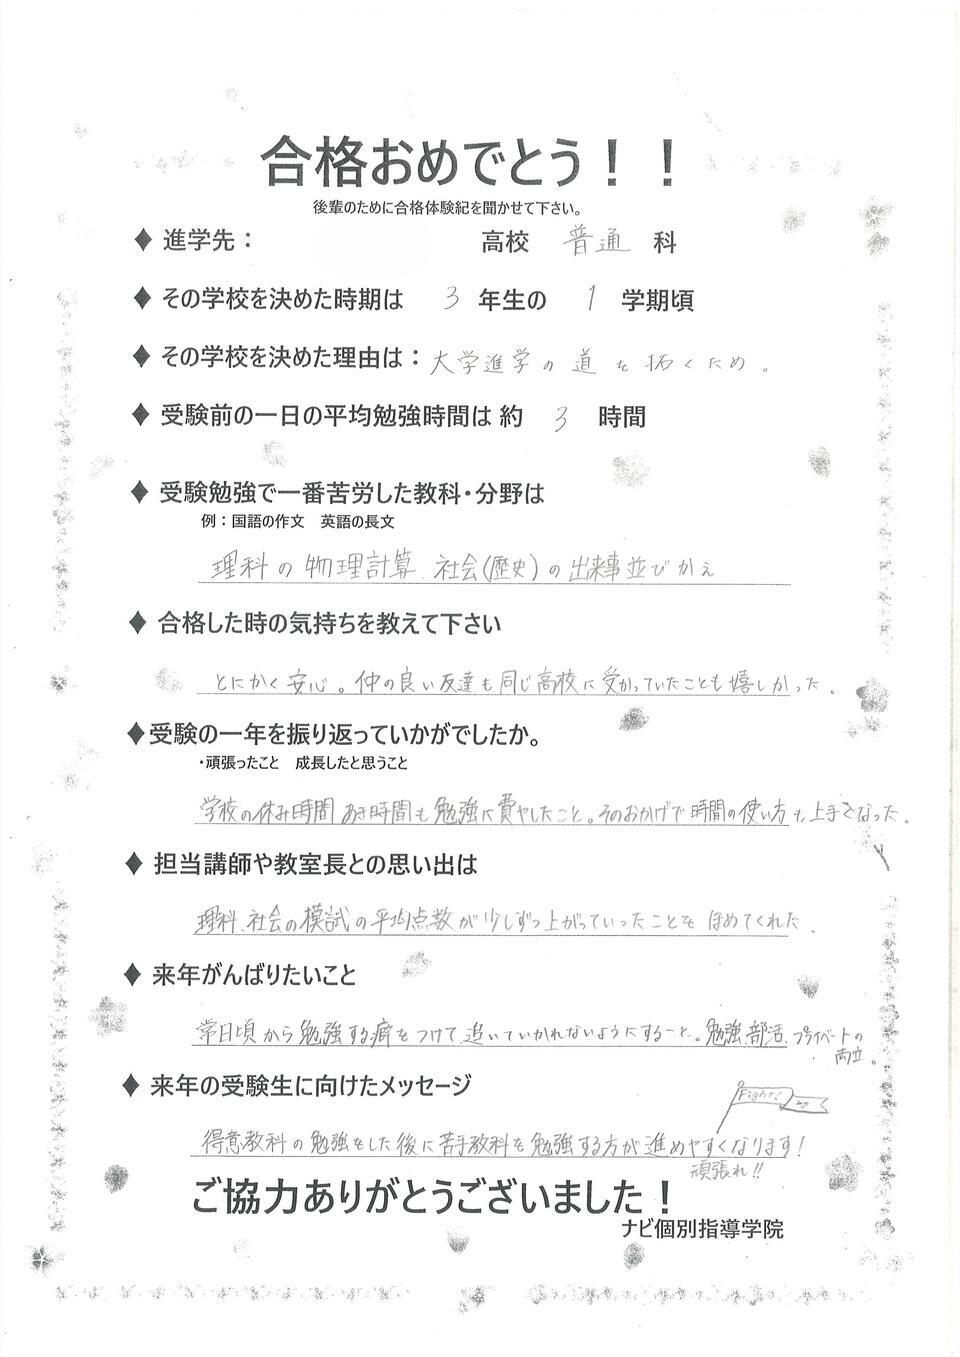 合格おめでとう！！
後輩のために合格体験紀を聞かせて下さい。
♦ 進学先： 高校 普通 科
♦ その学校を決めた時期は 3 年生の 1 学期頃
♦ その学校を決めた理由は： 大学進学の道を拓くため。
♦ 受験前の一日の平均勉強時間は 約 3 時間
♦ 受験勉強で一番苦労した教科・分野は
例：国語の作文　英語の長文
理科の物理計算、社会(歴史)の出来事並びかえ
♦ 合格した時の気持ちを教えて下さい
とにかく安心。仲の良い友達も同じ高校に受かっていたことも嬉しかった。
♦受験の一年を振り返っていかがでしたか。
・頑張ったこと　成長したと思うこと
学校の休み時間、あき時間も勉強に費やしたこと。そのおかげで時間の使い方も上手くなった。
♦ 担当講師や教室長との思い出は
理科、社会の模試の平均点数が少しずつ上がっていったことをほめてくれた。
♦ 来年がんばりたいこと
常日頃から勉強する癖をつけて追いていかれないようにすること。勉強、部活、プライベートの
両立。
♦ 来年の受験生に向けたメッセージ
Fight!
得意教科の勉強をした後に苦手教科を勉強する方が進めやすくなります！
頑張れ!!
ご協力ありがとうございました！
ナビ個別指導学院